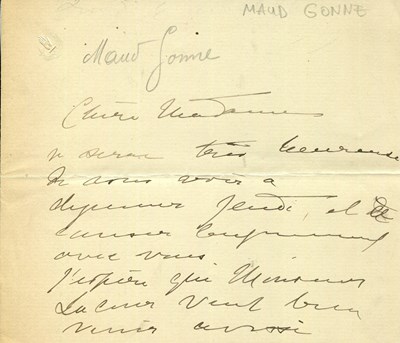 MAUD GONNE
Maud Gonne
Chère Madame
je serai très heureuse
de vous voir à
dejeuner Jeudi, et de
causer longuement
avec vous
J'espère que Monsieur
veut bien
venir aussi